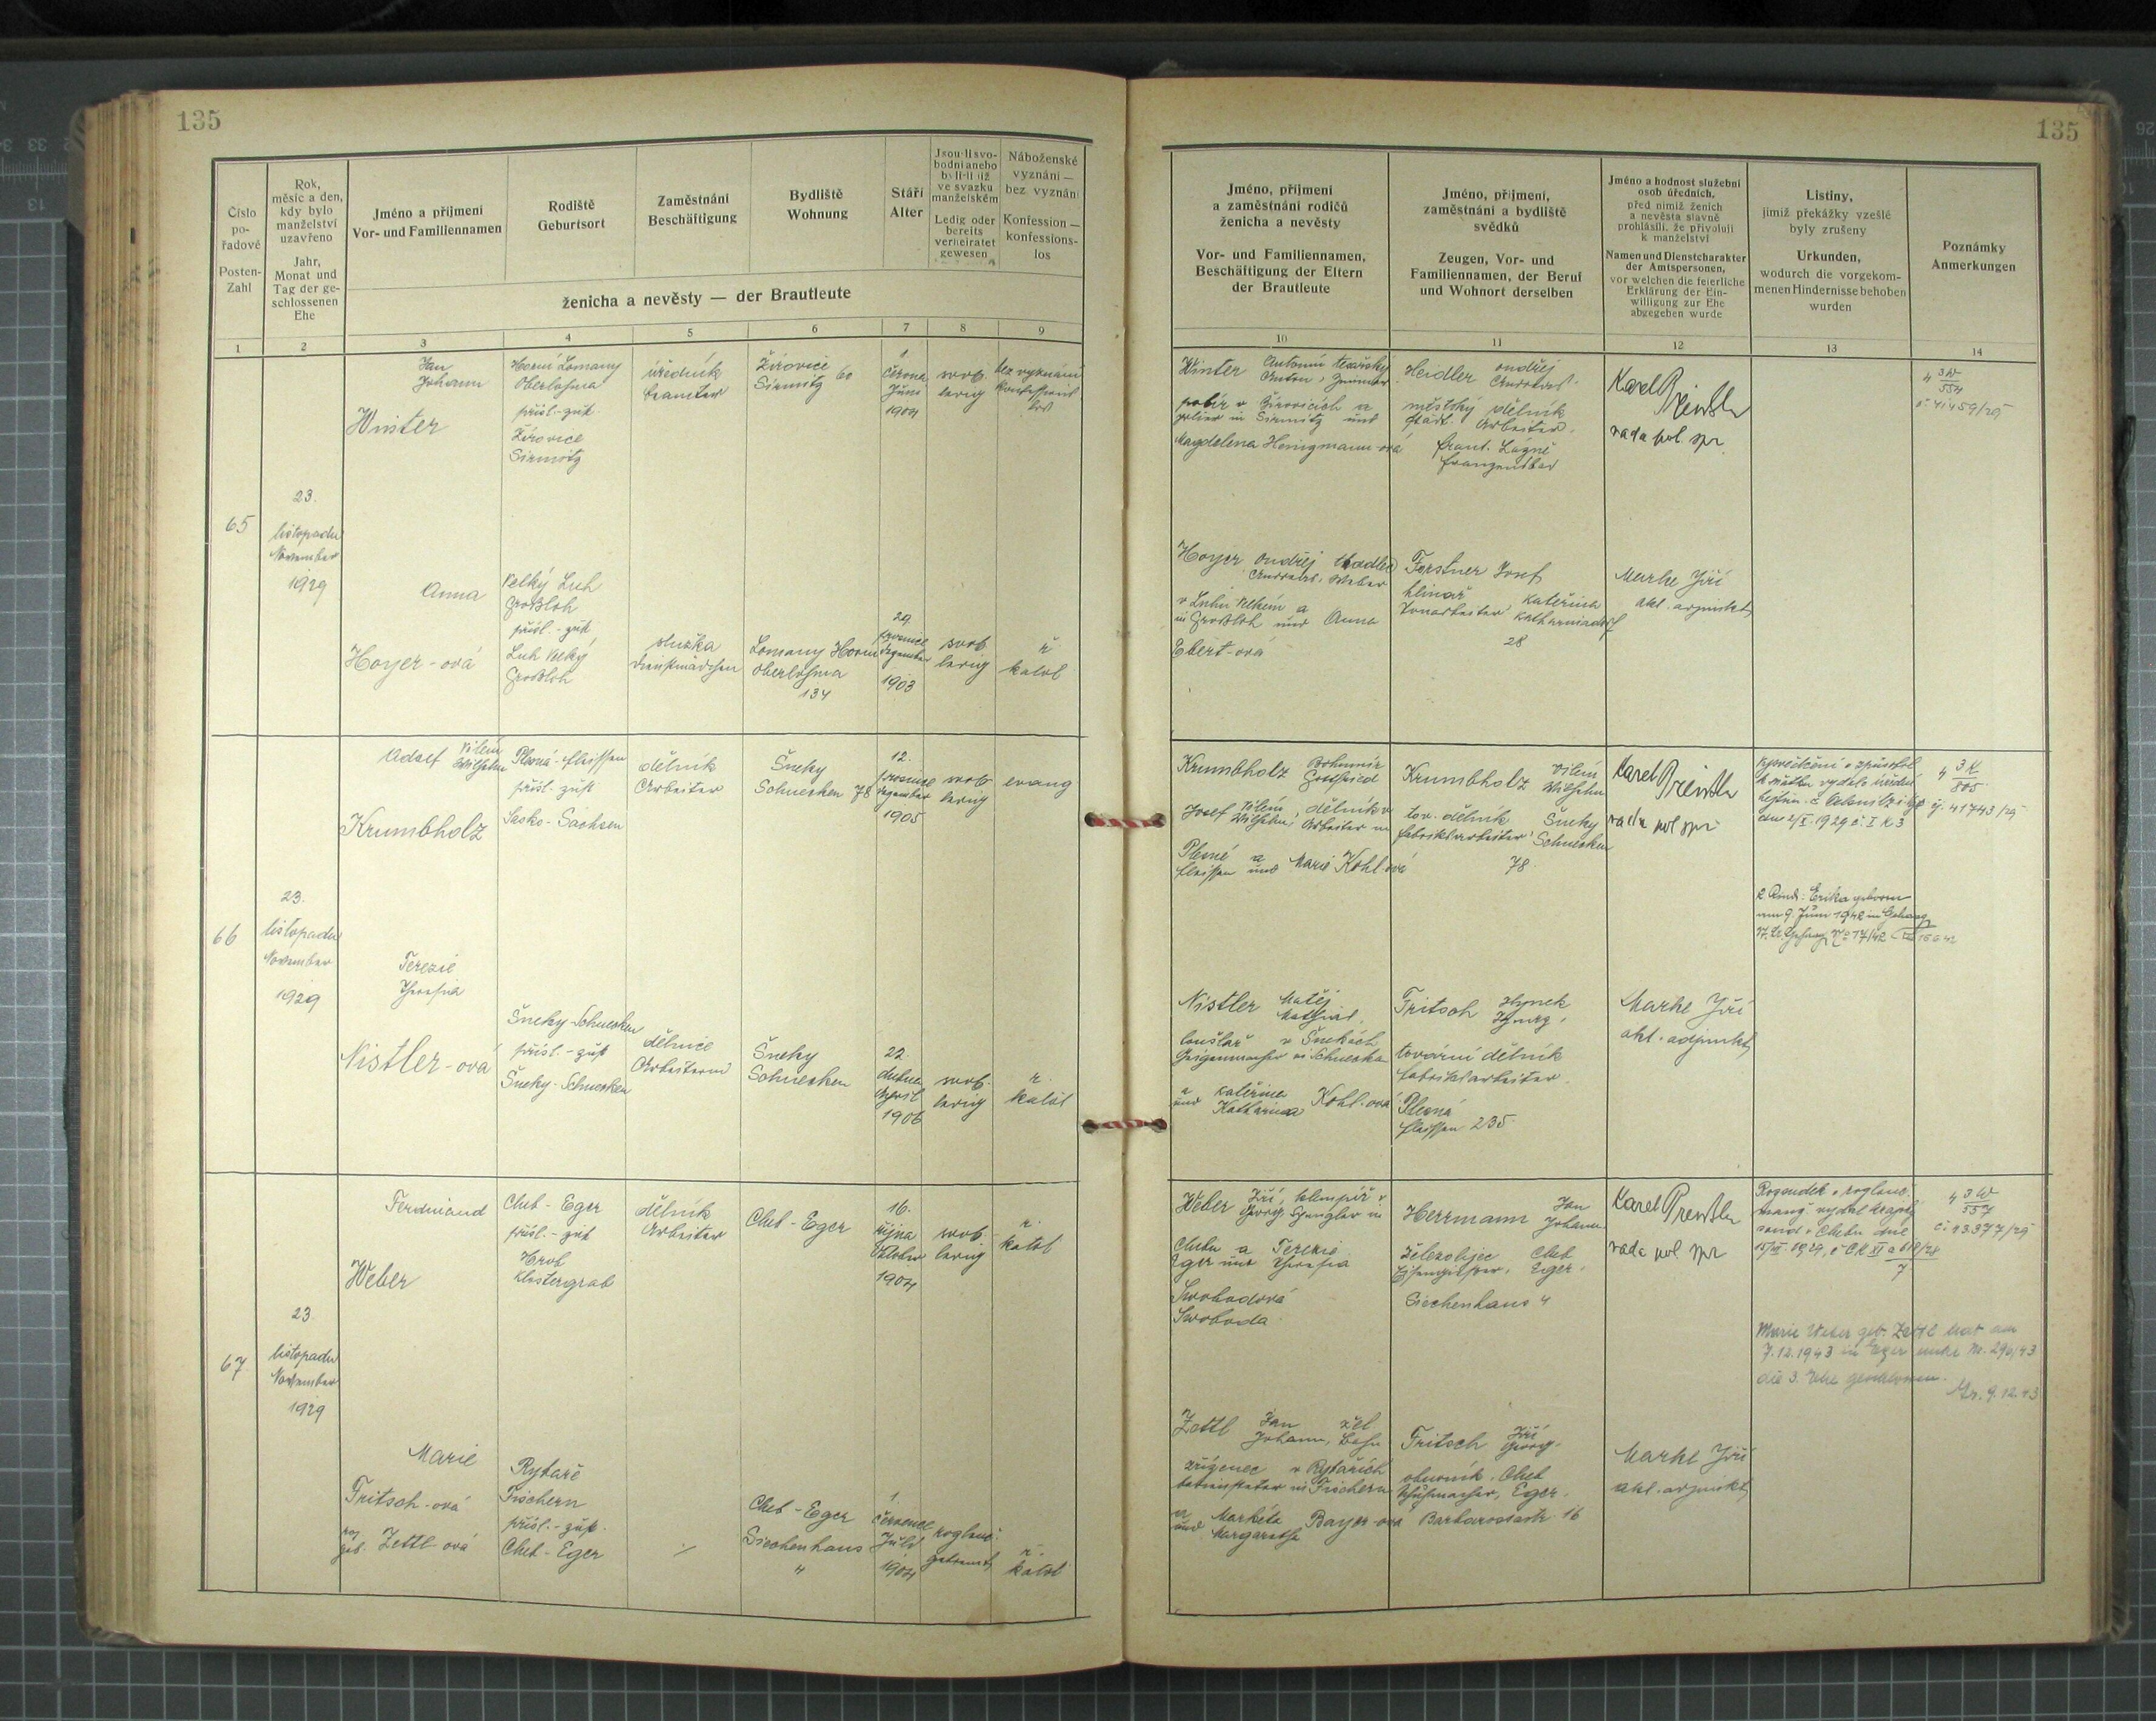 135
135
Číslo
po-
řadové
Posten-
Zahl
Rok,
měsíc a den,
kdy bylo
manželství
uzavřeno
Jahr,
Monat und
Tag der ge-
schlossenen
Ehe
Jméno a příjmení
Vor- und Familiennamen
Rodiště
Geburtsort
Zaměstnání
Beschäftigung
Bydliště
Wohnung
Stáří
Alter
Jsou-li svo-
bodni anebo
byli-li již
ve svazku
manželském
Ledig oder
bereits
verheiratet
gewesen
Náboženské
vyznání —
bez vyznání
Konfession —
konfessions-
los
ženicha a nevěsty — der Brautleute
1 2 3 4 5 6 7 8 9
Jméno, příjmení
a zaměstnání rodičů
ženicha a nevěsty
Vor- und Familiennamen,
Beschäftigung der Eltern
der Brautleute
Jméno, příjmení,
zaměstnání a bydliště
svědků
Zeugen, Vor- und
Familiennamen, der Beruf
und Wohnort derselben
Jméno a hodnost služební
osob úředních,
před nimiž ženich
a nevěsta slavně
prohlásili, že přivolují
k manželství
Namen und Dienstcharakter
der Amtspersonen,
vor welchen die feierliche
Erklärung der Ein-
willigung zur Ehe
abgegeben wurde
Listiny,
jimiž překážky vzešlé
byly zrušeny
Urkunden,
wodurch die vorgekom-
menen Hindernisse behoben
wurden
Poznámky
Anmerkungen
10 11 12 13 14
65
23.
listopadu
November
1929
Jan
Johann
Winter
Horní Lomany
Oberlohma
přísl. - zust.
Žírovice
Sirmitz
úředník
Beamter
Žírovice
Sirmitz 60
1.
června
Juni
1904
svob.
ledig
bez vyznání
Konfessions
los
Winter Antonín tesařský
Anton, Zimmer
polír v Žírovicích a
polier in Sirmitz und
Magdalena Henigmann-ová
Heidler Ondřej
Andreas
městský dělník
städt. Arbeiter
Frant. Lázně
Franzensbad
Karel
rada pol. spr.
č. 41459/29
Anna
Hoyer-ová
Velký Luh
Großloh
přísl. - zust
Luh Velký
Großloh
služka
Dienstmädchen
Lomany Horní
Oberlohma
134
29.
prosince
Dezember
1903
svob
ledig
ř.
katol
Hoyer Ondřej tkadlec
Andreas, Weber
v Luhu Velkém a
in Großloh und Anna
Ebert-ová
Forstner Josef
hlinař Kateřina
Tonarbeiter Katharinadorf
28
Markl Jiří
akt. adjunkt
66
23.
listopadu
November
1929
Adolf Vilém
Wilhelm
Krumbholz
Plesná - Fleissen
přísl. - zust
Sasko - Sachsen
dělník
Arbeiter
Šneky
Schnecken 78
12.
prosince
Dezember
1905
svob
ledig
evang
Krumbholz Bohumír
Gottfried
Josef Vilém, dělník v
Wilhelm, Arbeiter in
Plesné a
Fleissen und Marie Kohl-ová
Krumbholz Vilém
Wilhelm
tov. dělník Šneky
Fabriksarbeiter Schnecken
78
Karel
rada pol spr
č. 41743/29
2. Kind: Erika geboren
am 9. Juni 1942 in
Terezie
Theresia
Nistler-ová
Šneky-Schnecken
přísl. - zust
Šneky-Schnecken
dělnice
Arbeiterin
Šneky
Schnecken
22.
dubna
April
1906
svob.
ledig
ř.
katol
Nistler Matěj
Mathias,
houslař v Šnekách
Geigenmacher in Schnecken
a Kateřina
und Katharina Kohl-ová
Fritsch Hynek
Ignaz,
tovární dělník
Fabriksarbeiter.
Plesná
Fleissen 235
Markl Jiří
akt. adjunkt
67
23.
listopadu
November
1929
Ferdinand
Weber
Cheb - Eger
přísl. - zust
Hrob
Klostergrab
dělník
Arbeiter
Cheb - Eger
16.
října
Oktober
1904
svob
ledig
ř.
katol
Weber Jiří, klempíř v
Georg, Spengler in
Chebu a Terezie
Eger und Theresia
Swobodová
Swoboda
Herrmann Jan
Johann
železolijec Cheb
Eisengießer, Eger.
Siechenhaus 4
Karel
rada pol. spr
č. 43377/29
Marie Weber geb. Zettl hat am
7.12.1943 in Eger unter Nr. 290/43
die 3. Ehe geschlossen.
9.12.43
Marie
Fritsch-ová
roz
geb. Zettl-ová
Rybáře
Fischern
přísl. - zust.
Cheb - Eger
Cheb - Eger
Siechenhaus
4
1.
července
Juli
1904
rozlouč.
getrennt
ř.
katol
Zettl Jan žel.
Johann, Bahn
zřízenec v Rybářích
bediensteter in Fischern
a Markéta
und Margarethe Bayer-ová
Fritsch Jiří
Georg.
obuvník, Cheb
Schuhmacher, Eger.
Barbarossastr. 16
Markl Jiří
akt. adjunkt